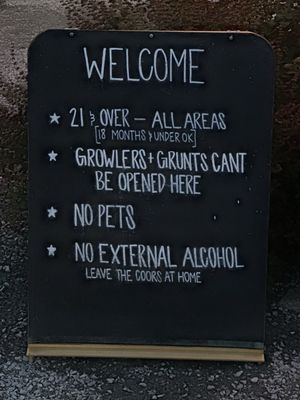 WELCOME
★ 21 & OVER – ALL AREAS
[18 MONTHS & UNDER OK]
★ GROWLERS + GRUNTS CANT
BE OPENED HERE
★ NO PETS
★ NO EXTERNAL ALCOHOL
LEAVE THE COORS AT HOME